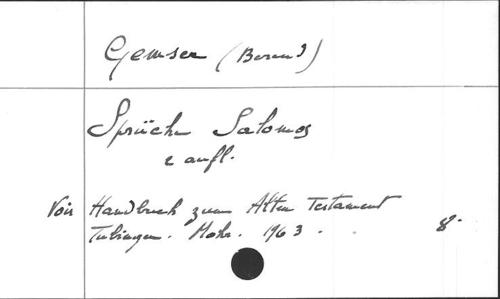 Gemser (Berend)
Sprüche Salomos
2 aufl.
Voir Handbuch zum Alten Testament
Tubingen. Mohr. 1963. . 8°.